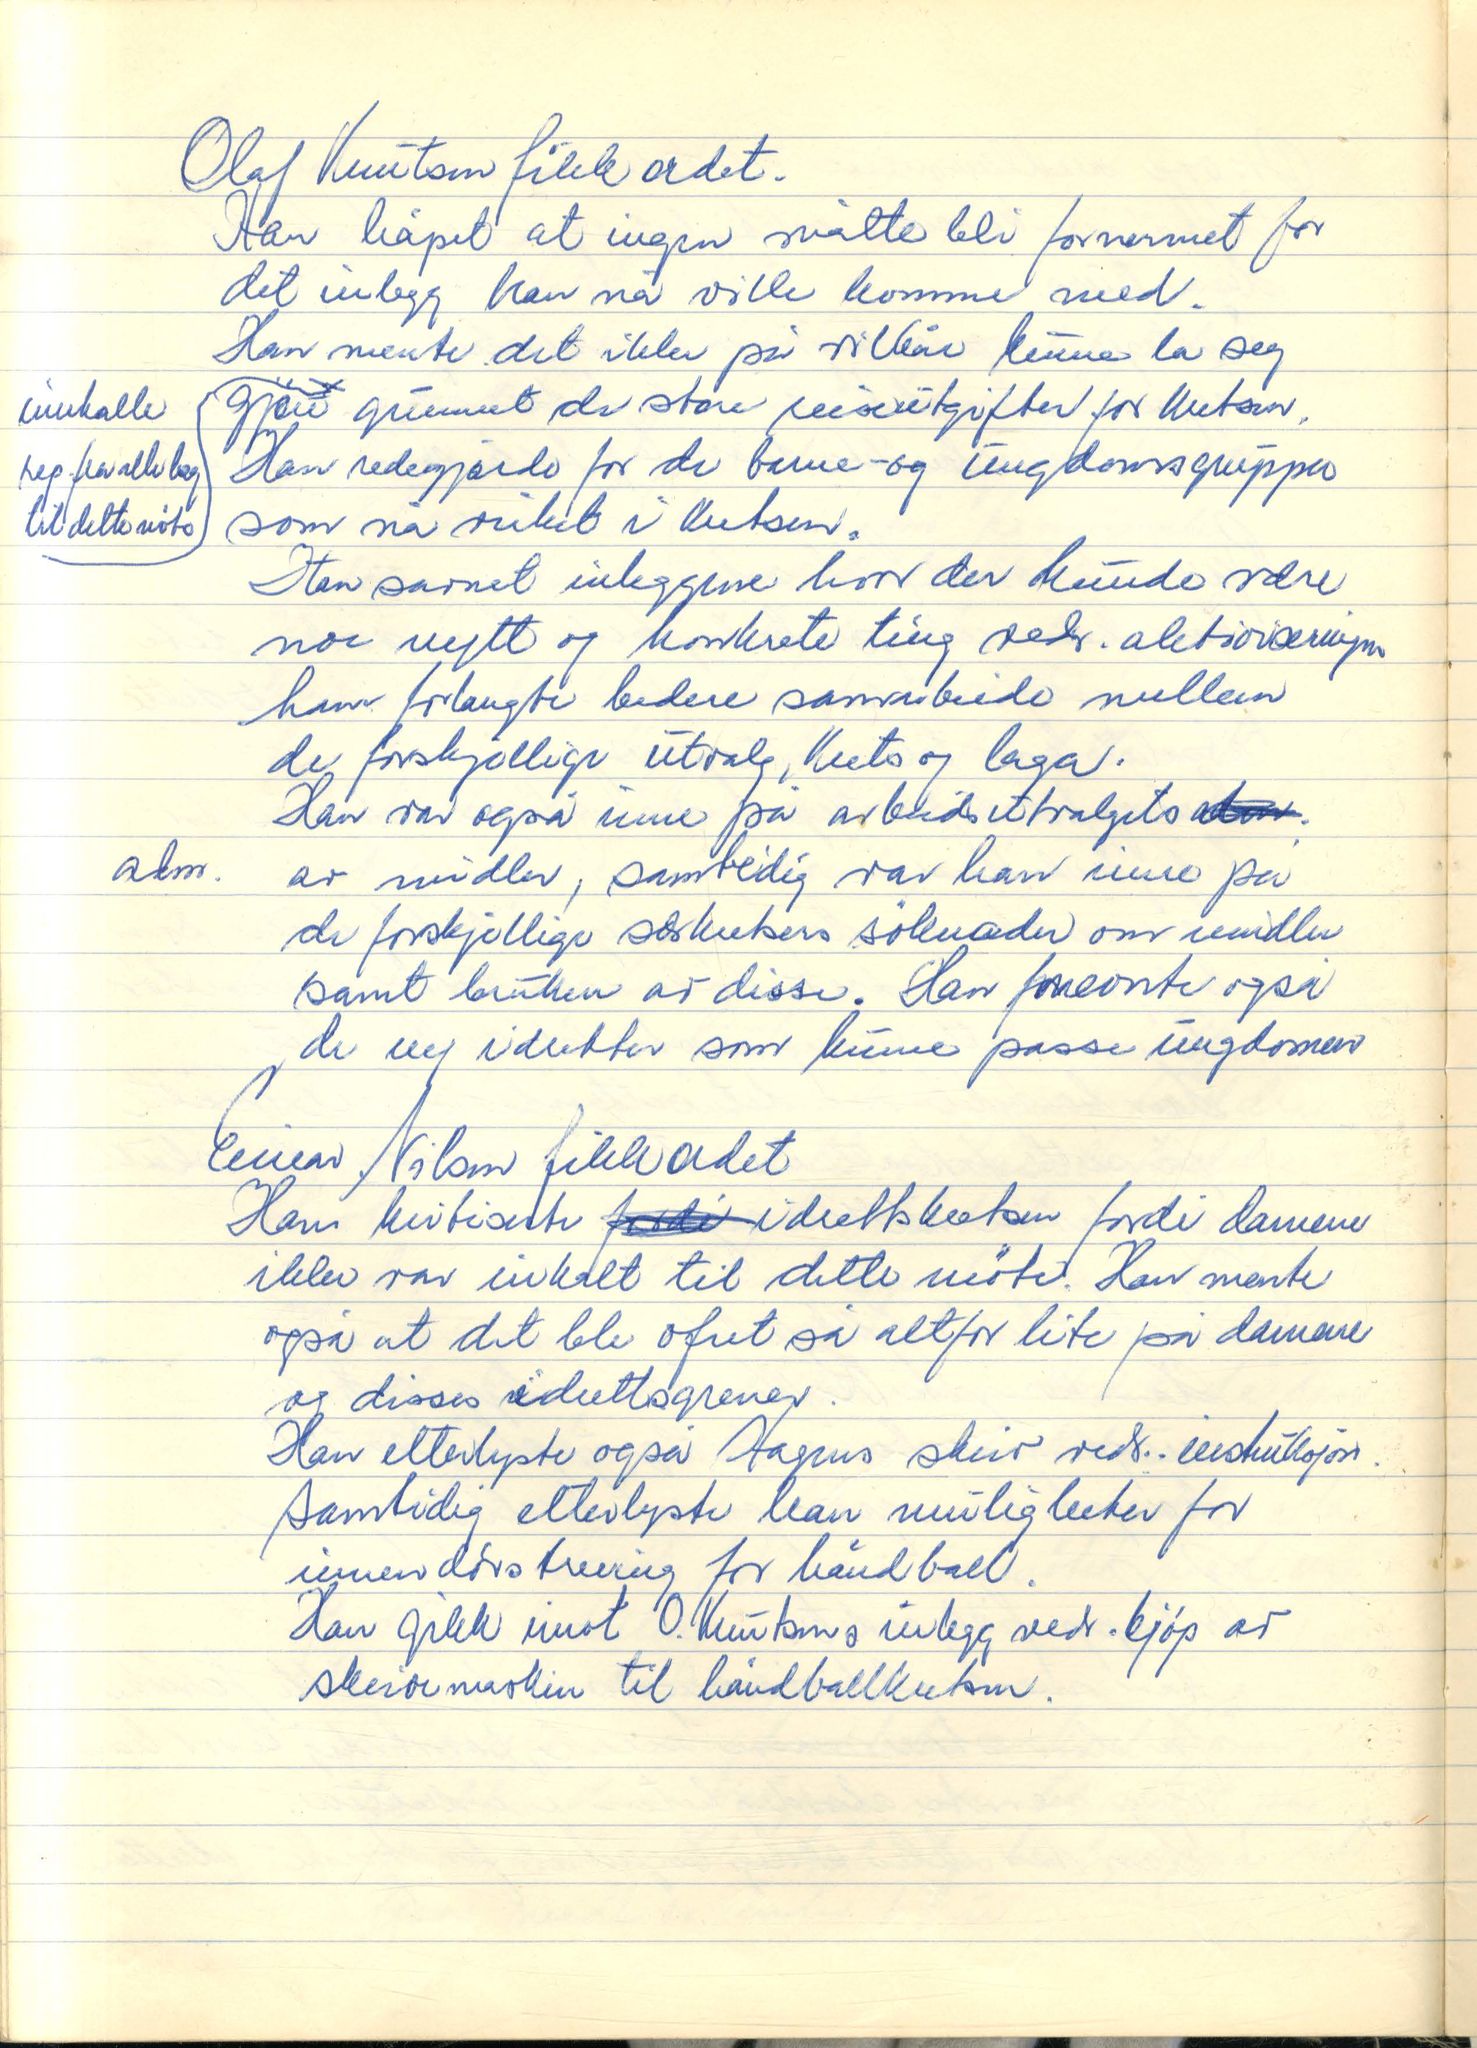 Olaf Knutsen fikk ordet.
Han håpet at ingen måtte bli fornermet for
det inlegg han nå ville komme med.
Han mente det ikke på vilkår kunne la seg
gjøre grunnet de store reiseutgifter for kretsen.
innkalle
rep. fra alle lag
til dette møte
Han redegjorde for de barne- og ungdomsgrupper
som nå virket i kretsen.
Han savnet inleggene hvor der kunde være
noe nytt og konkrete ting vedr. aktiviseringen
han forlangte bedere samarbeide mellem
de forskjellige utvalg, krets og laga.
Han var også inne på arbeidsutvalgets
adm. av midler, samtidig var han inne på
de forskjellige særkretsers söknader om midler
samt bruken av disse. Han også
de ny idretter som kunne passe ungdomen
Einar Nilsen fikk ordet
Han kritiserte fordi idrettskretsen fordi damene
ikke var inkalt til dette möte. Han mente
også at det ble ofret så altfor lite på damene
og disses idrettsgrener.
Han etterlyste også Aagens skriv vedr. instruksjon.
Samtidig etterlyste han muligheter for
innendörs trening for håndball.
Han gikk imot O. Knutsens inlegg vedr. kjøp av
skrivemaskin til håndballkretsen.